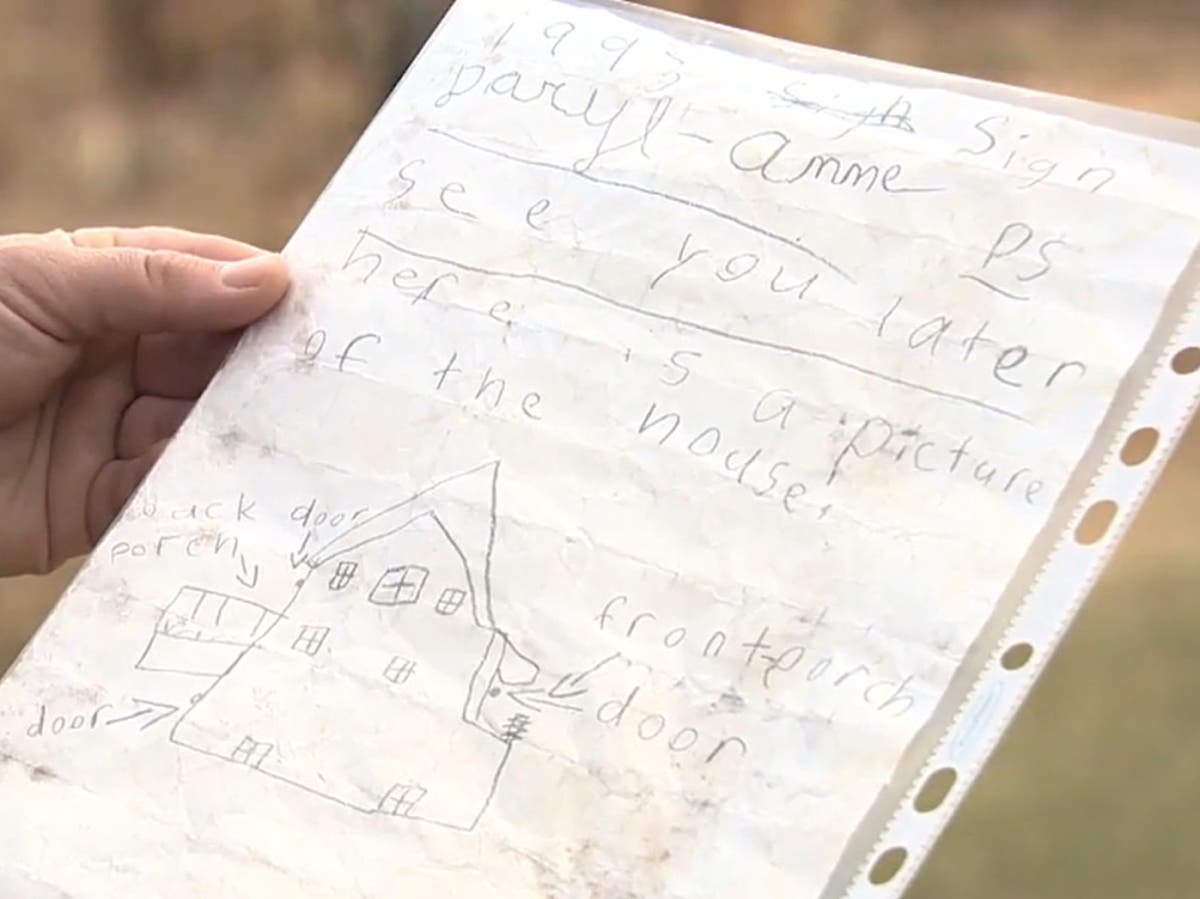 1993 Sign Sign
Daryl-Anne
PS
See you later
here is a picture
of the house.
back door
porch
front porch
door
door